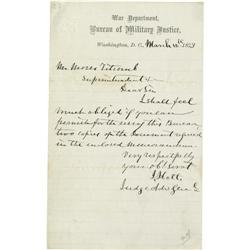 War Department,
Bureau of Military Justice,
Washington, D.C. March
Mr Moses Titcomb
Superintendent &c
Dear Sir
I shall feel
much obliged if you can
permit for the use of this Bureau
two copies of the document referred
in the enclosed Memorandum
Very respectfully
your obt Servt
J Holt
Judge Adv Genl